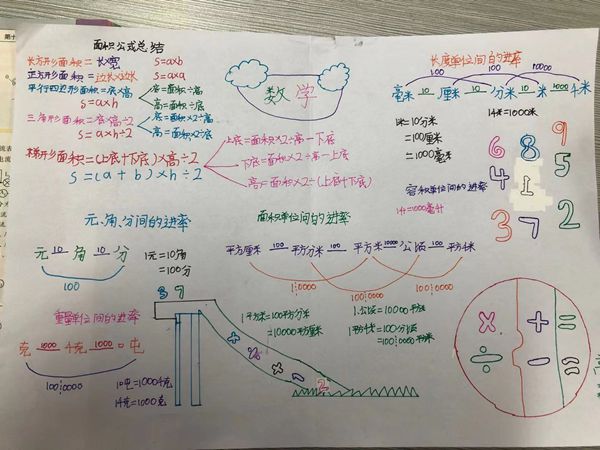 面积公式总结
长方形面积=长×宽 S=a×b
正方形面积=边长×边长 S=a×a
平行四边形面积=底×高
S=a×h
底=面积÷高
高=面积÷底
三角形面积=底×高÷2
S=a×h÷2
底=面积×2÷高
高=面积×2÷底
梯形面积=(上底+下底)×高÷2
S=(a+b)×h÷2
上底=面积×2÷高-下底
下底=面积×2÷高-上底
高=面积×2÷(上底+下底)
数学
长度单位间的进率
100 100 10000
毫米 10 厘米 10 分米 10 米 1000 千米
1米=10分米
=100厘米
=1000毫米
1千米=1000米
容积单位间的进率
1升=1000毫升
6 8 9
4 1 5
3 7 2
元、角、分间的进率
元 10 角 10 分
100
1元=10角
=100分
面积单位间的进率
平方厘米 100 平方分米 100 平方米 10000 公顷 100 平方千米
10000 1000000
1平方米=100平方分米
=10000平方厘米
1公顷=10000平方米
1平方千米=100公顷
重量单位间的进率
克 1000 千克 1000 吨
1千克=1000克
3 9
+ × + - 2
× + =
÷ - ≈